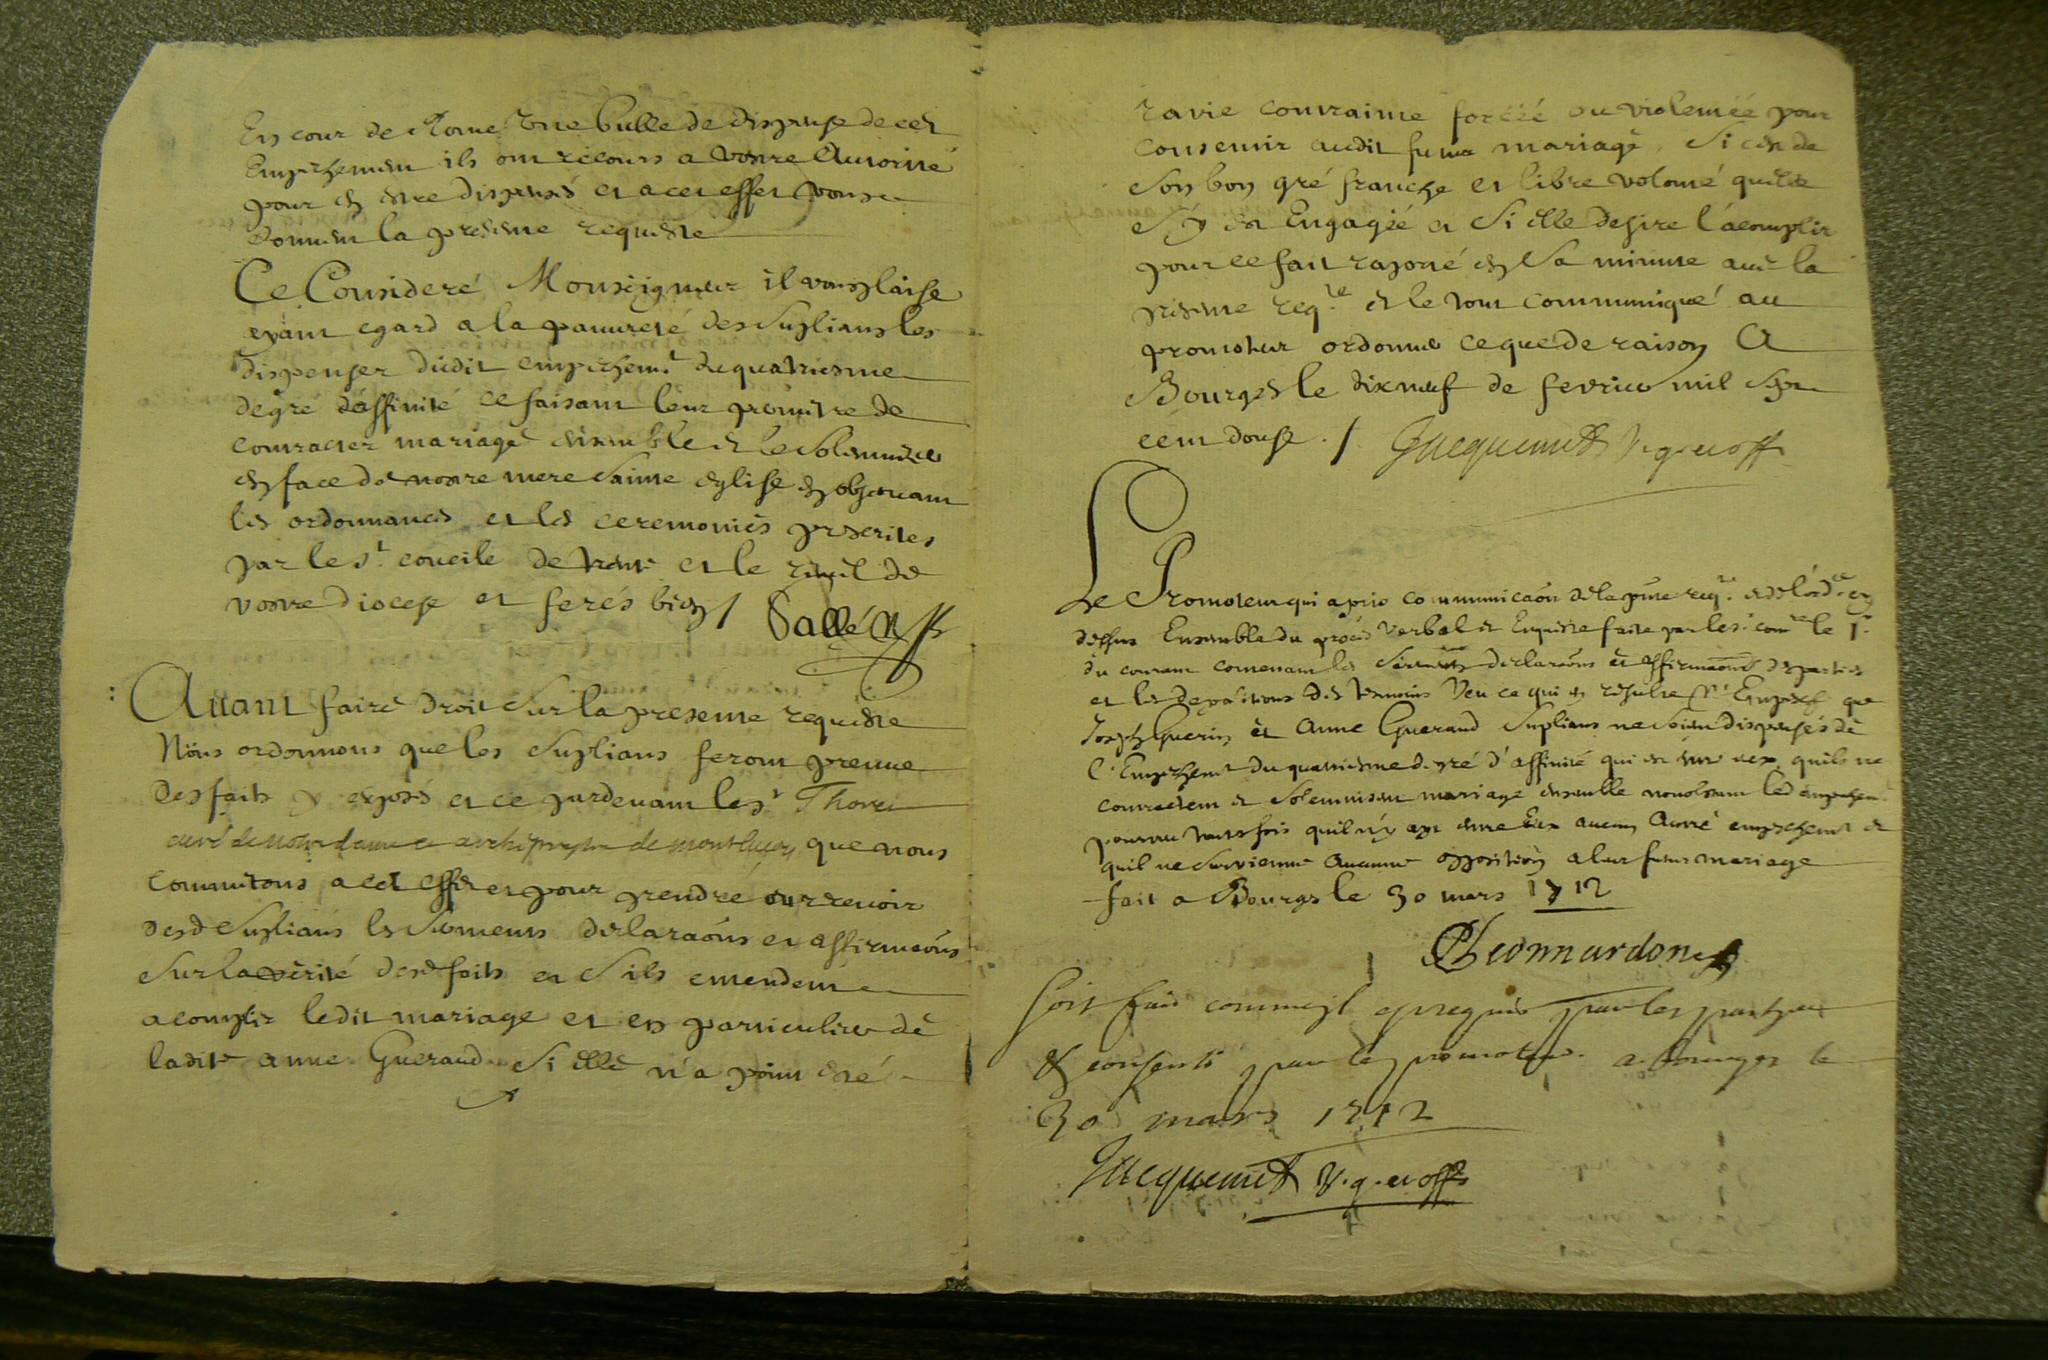 En cour de Rome une bulle de dispense de cet
Empeschement ils ont recours a vostre Autorité
pour en estre dispensés et a cet effet vous
donnent la presente requeste
Ce Consideré Monseigneur il vous plaise
ayant egard a la pauureté des suplians les
dispenser dudit empeschemt du quatriesme
degré d'affinité ce faisant leur permettre de
contracter mariage ensemble et le solemniser
en face de nostre mere sainte eglise en obseruant
les ordonnances et les ceremonies prescrites
par le st concile de trente et le rituel de
vostre diocese et ferés bien /
Auant faire droit sur la presente requeste
Nous ordonnons que les suplians feront preuue
des faits y exposés et ce pardeuant le sr Thorel
curé de nostre dame et archiprestre de montluçon que nous
commettons a cet effet et pour prendre et receuoir
desd suplians les sermens declaraõns et affirmaõns
sur la verité desd faits et s'ils entendent
acomplir ledit mariage et en particulier de
ladite anne Gueraud si elle n'a point esté
ravie contrainte forcéé ou violentéé pour
consentir audit futur mariage, si c'est de
son bon gré franche et libre volonté qu'elle
s'y est Engagéé et si elle desire l'acomplir
pour ce fait raporté en sa minute auec la
presente reqte et le tout communiqué au
promoteur ordonner ce que de raison A
Bourges le dixneuf de fevrier mil sept
cent douse . / Jacquemet v.g. et off
Le Promoteur qui a pris communicaõn de la pnte reqte et de l'ordce cy
dessus Ensemble du procés verbal et Enqueste faite par led sr comre le 1r
du courant contenant les serments declaraõns et affirmaõns des parties
et les depositions des temoins Veu ce qui en resulte n'Empesche que
Joseph Guerin et Anne Gueraud suplians ne soient dispensés de
l'Empeschemt du quatriesme degré d'affinité qui est entre eux, quils ne
contractent et solemnisent mariage ensemble nonobstant led empeschemt
pourvu toutesfois quil n'y ayt entre Eux aucun Autre empeschemt et
quil ne survienne Aucune opposition a leur futur mariage
fait a Bourges le 30 mars 1712
Soit fait comme il est requis par les parties
& consenti par le promoteur. a bourges le
30 mars 1712
Jacquemet v.g. et off